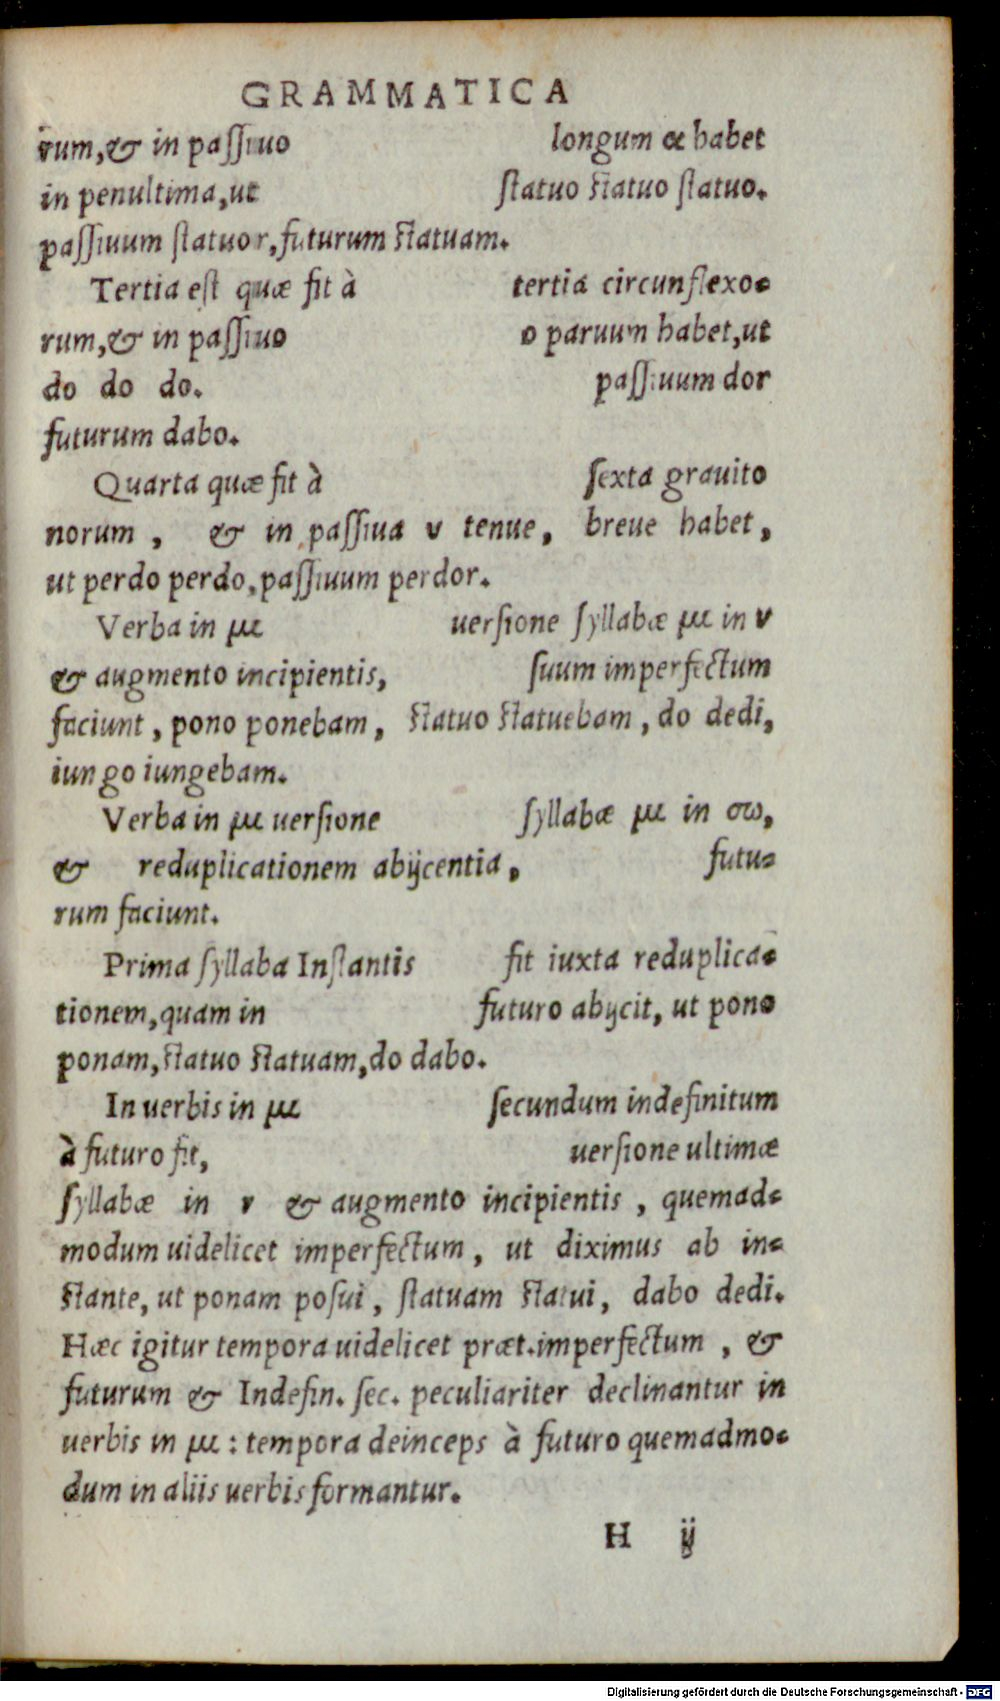 GRAMMATICA
rum,& in paſſiuo longum α habet
in penultima,ut ſtatuo ſtatuo ſtatuo.
paſſiuum ſtatuor,futurum ſtatuam.
Tertia eſt quæ fit à tertia circunflexo-
rum,& in paſſiuo o paruum habet,ut
do do do. paſſiuum dor
futurum dabo.
Quarta quæ fit à ſexta grauito
norum , & in paſſiua υ tenue, breue habet,
ut perdo perdo,paſſiuum perdor.
Verba in μι uerſione ſyllabæ μι in ν
& augmento incipientis, ſuum imperfectum
faciunt , pono ponebam , ſtatuo ſtatuebam , do dedi,
iungo iungebam.
Verba in μι uerſione ſyllabæ μι in σω,
& reduplicationem abijcentia, futu-
rum faciunt.
Prima ſyllaba Inſtantis fit iuxta reduplica-
tionem,quam in futuro abijcit, ut pono
ponam,ſtatuo ſtatuam,do dabo.
In uerbis in μι ſecundum indefinitum
à futuro fit, uerſione ultimæ
ſyllabæ in ν & augmento incipientis , quemad-
modum uidelicet imperfectum , ut diximus ab in-
ſtante, ut ponam poſui , ſtatuam ſtatui, dabo dedi.
Hæc igitur tempora uidelicet præt.imperfectum , &
futurum & Indefin. ſec. peculiariter declinantur in
uerbis in μι : tempora deinceps à futuro quemadmo-
dum in aliis uerbis formantur.
H ij
Digitalisierung gefördert durch die Deutsche Forschungsgemeinschaft - DFG